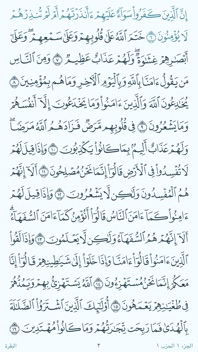 إِنَّ ٱلَّذِينَ كَفَرُوا۟ سَوَآءٌ عَلَيْهِمْ ءَأَنذَرْتَهُمْ أَمْ لَمْ تُنذِرْهُمْ
لَا يُؤْمِنُونَ ٦ خَتَمَ ٱللَّهُ عَلَىٰ قُلُوبِهِمْ وَعَلَىٰ سَمْعِهِمْ ۖ وَعَلَىٰٓ
أَبْصَٰرِهِمْ غِشَٰوَةٌ ۖ وَلَهُمْ عَذَابٌ عَظِيمٌ ٧ وَمِنَ ٱلنَّاسِ
مَن يَقُولُ ءَامَنَّا بِٱللَّهِ وَبِٱلْيَوْمِ ٱلْءَاخِرِ وَمَا هُم بِمُؤْمِنِينَ ٨
يُخَٰدِعُونَ ٱللَّهَ وَٱلَّذِينَ ءَامَنُوا۟ وَمَا يَخْدَعُونَ إِلَّآ أَنفُسَهُمْ
وَمَا يَشْعُرُونَ ٩ فِى قُلُوبِهِم مَّرَضٌ فَزَادَهُمُ ٱللَّهُ مَرَضًا ۖ
وَلَهُمْ عَذَابٌ أَلِيمٌۢ بِمَا كَانُوا۟ يَكْذِبُونَ ١٠ وَإِذَا قِيلَ لَهُمْ
لَا تُفْسِدُوا۟ فِى ٱلْأَرْضِ قَالُوٓا۟ إِنَّمَا نَحْنُ مُصْلِحُونَ ١١ أَلَآ إِنَّهُمْ
هُمُ ٱلْمُفْسِدُونَ وَلَٰكِن لَّا يَشْعُرُونَ ١٢ وَإِذَا قِيلَ لَهُمْ
ءَامِنُوا۟ كَمَآ ءَامَنَ ٱلنَّاسُ قَالُوٓا۟ أَنُؤْمِنُ كَمَآ ءَامَنَ ٱلسُّفَهَآءُ ۗ
أَلَآ إِنَّهُمْ هُمُ ٱلسُّفَهَآءُ وَلَٰكِن لَّا يَعْلَمُونَ ١٣ وَإِذَا لَقُوا۟
ٱلَّذِينَ ءَامَنُوا۟ قَالُوٓا۟ ءَامَنَّا وَإِذَا خَلَوْا۟ إِلَىٰ شَيَٰطِينِهِمْ قَالُوٓا۟ إِنَّا
مَعَكُمْ إِنَّمَا نَحْنُ مُسْتَهْزِءُونَ ١٤ ٱللَّهُ يَسْتَهْزِئُ بِهِمْ وَيَمُدُّهُمْ
فِى طُغْيَٰنِهِمْ يَعْمَهُونَ ١٥ أُو۟لَٰٓئِكَ ٱلَّذِينَ ٱشْتَرَوُا۟ ٱلضَّلَٰلَةَ
بِٱلْهُدَىٰ فَمَا رَبِحَت تِّجَٰرَتُهُمْ وَمَا كَانُوا۟ مُهْتَدِينَ ١٦
الجزء ١ الحزب ١ ٣ البقرة